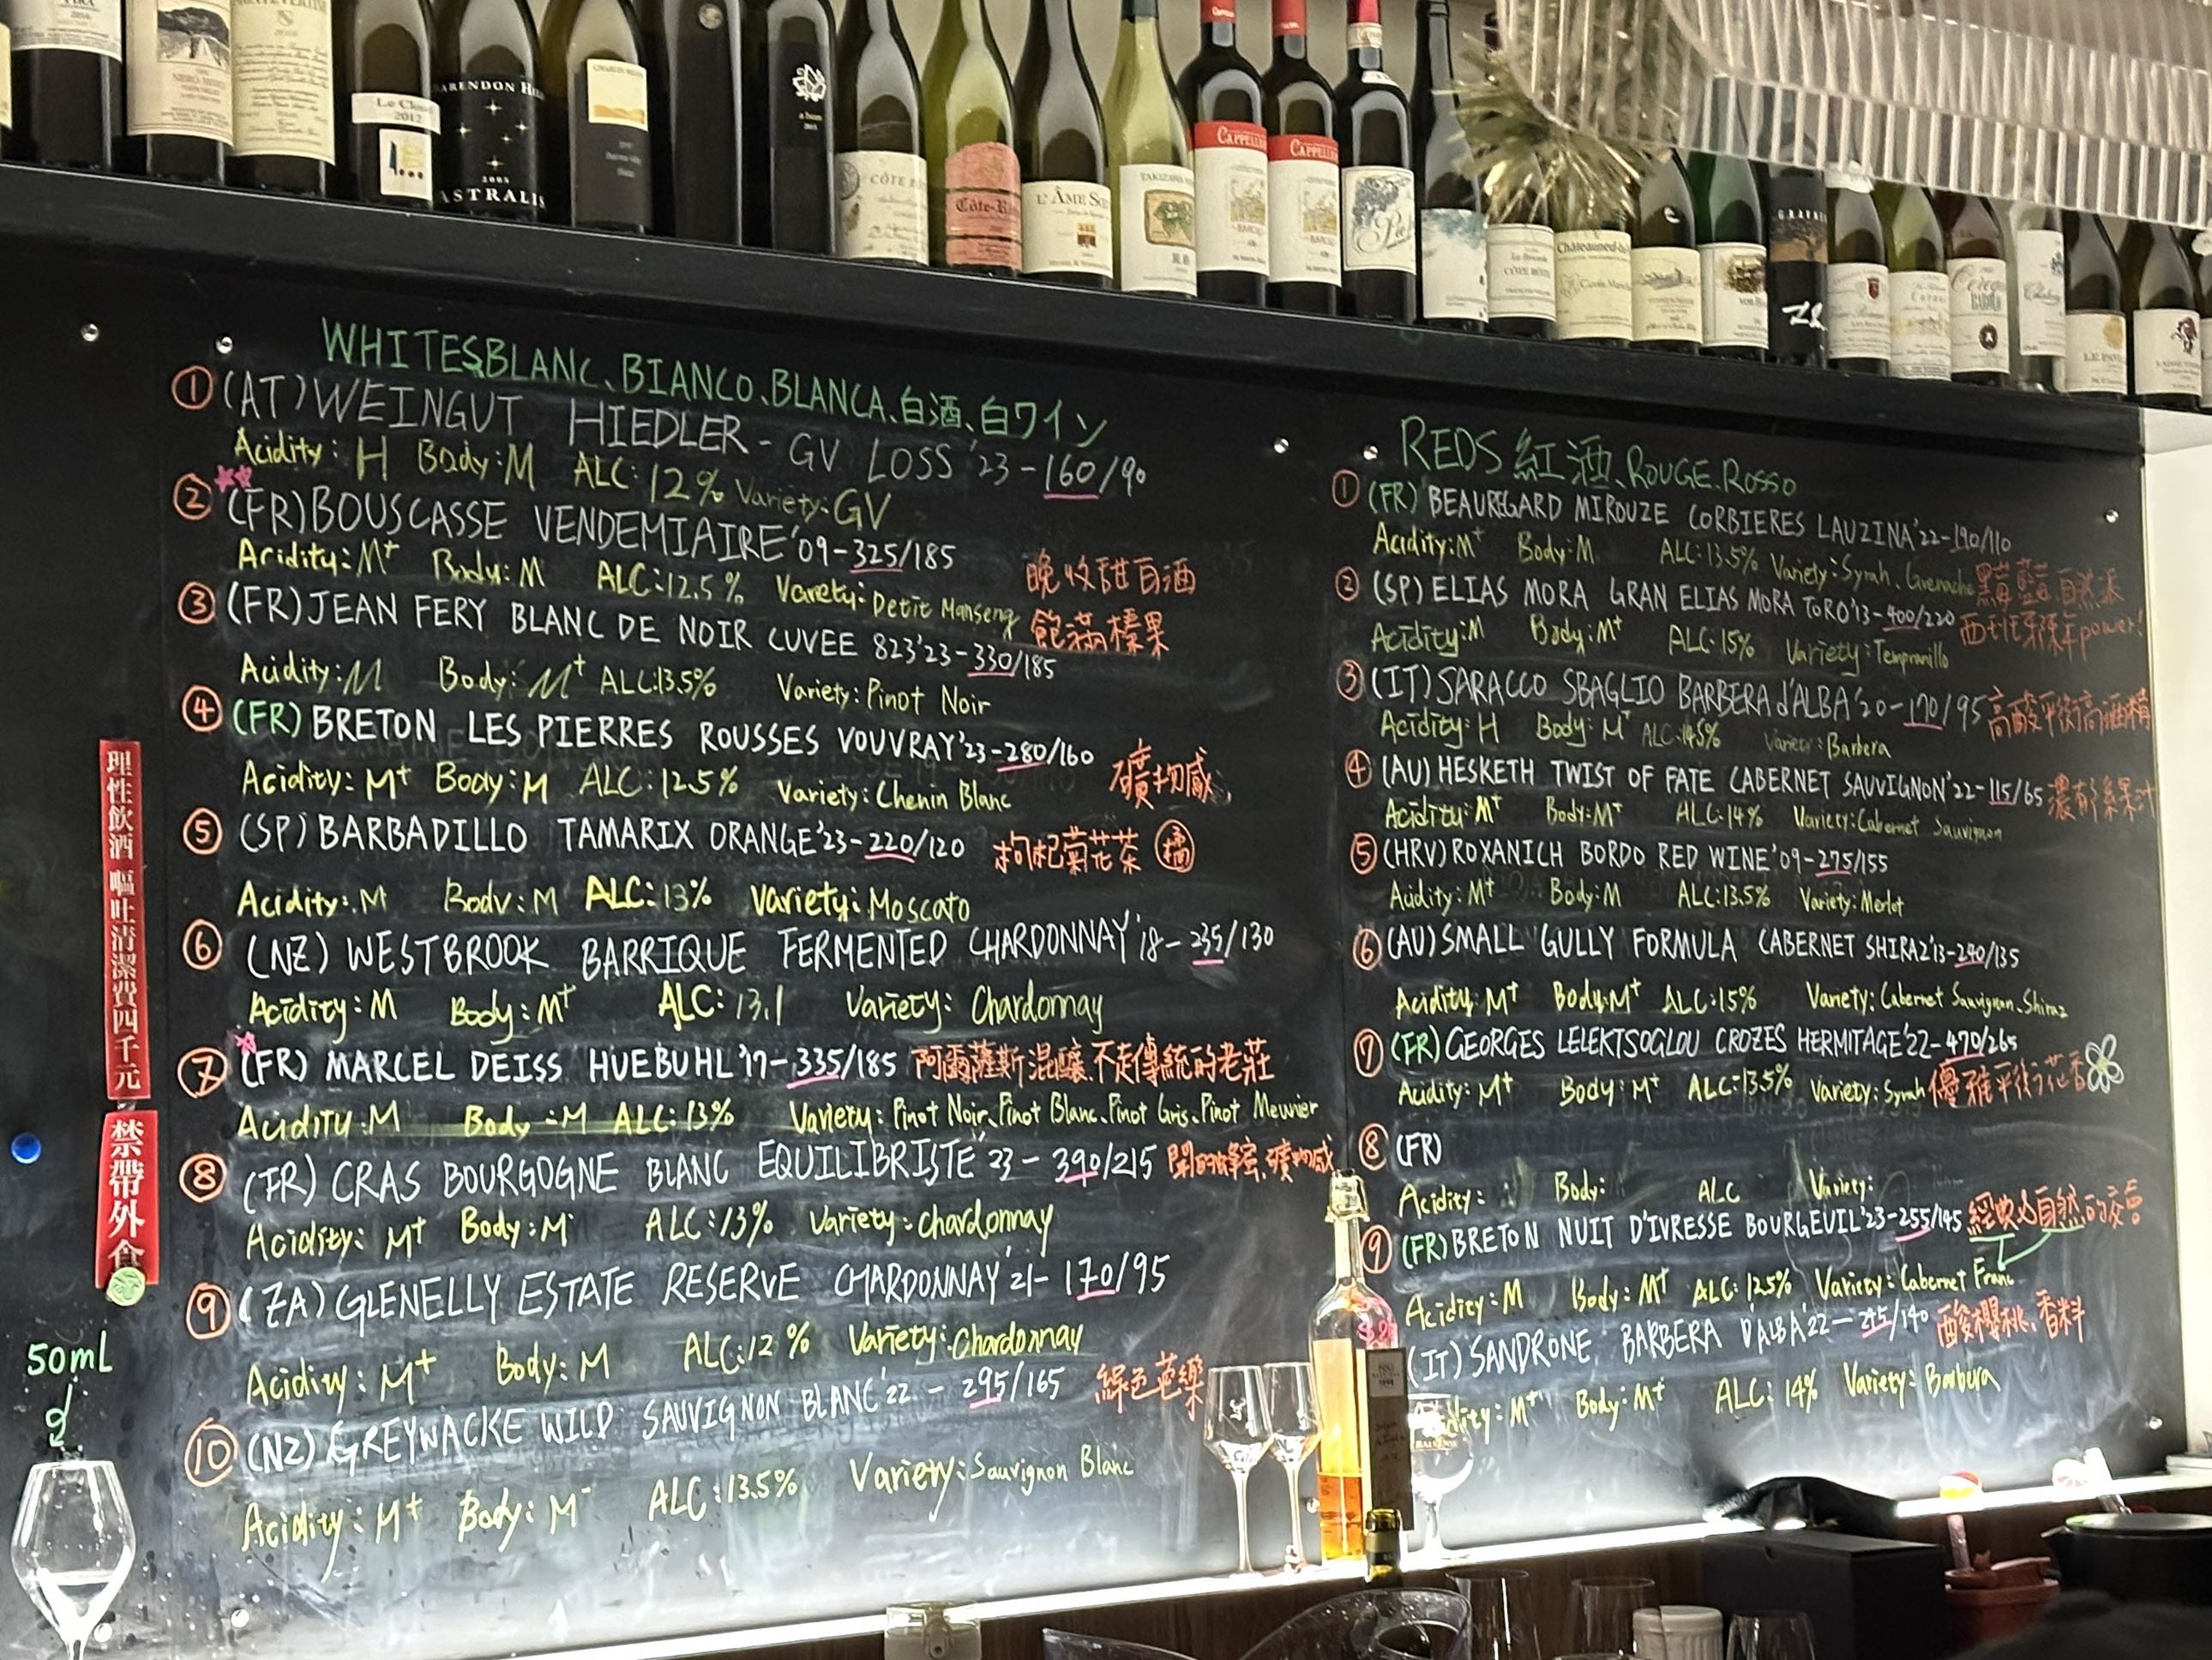 Le Clos
2012
ASTRALIS
2005
CÔTE
Côte-Rô
L'ÂME S
CAPPELLA
CAPPELLA
CÔTE RÔTIE
Châteauneuf-
WHITES BLANC、BIANCO、BLANCA、白酒、白ワイン
① (AT) WEINGUT HIEDLER - GV LOSS '23 - 160/90
Acidity: H Body: M ALC: 12% Variety: GV
② (FR) BOUSCASSE VENDEMIAIRE '09 - 325/185 晚收甜白酒
Acidity: M+ Body: M ALC: 12.5% Varety: Detit Manseng
③ (FR) JEAN FERY BLANC DE NOIR CUVEE 823 '23 - 330/185 飽滿榛果
Acidity: M Body: M+ ALC: 13.5% Variety: Pinot Noir
④ (FR) BRETON LES PIERRES ROUSSES VOUVRAY '23 - 280/160 礦物感
Acidity: M+ Body: M ALC: 12.5% Variety: Chenin Blanc
⑤ (SP) BARBADILLO TAMARIX ORANGE '23 - 220/120 枸杞菊花茶 橘
Acidity: M Body: M ALC: 13% Variety: Moscato
⑥ (NZ) WESTBROOK BARRIQUE FERMENTED CHARDONNAY '18 - 235/130
Acidity: M Body: M+ ALC: 13.1 Variety: Chardonnay
⑦ (FR) MARCEL DEISS HUEBUHL '17 - 335/185 阿爾薩斯混釀、不走傳統的老莊
Acidity: M Body: M ALC: 13% Variety: Pinot Noir、Pinot Blanc、Pinot Gris、Pinot Meunier
⑧ (FR) CRAS BOURGOGNE BLANC EQUILIBRISTE '23 - 390/215 礦物感
Acidity: M+ Body: M- ALC: 13% Variety: Chardonnay
⑨ (ZA) GLENELLY ESTATE RESERVE CHARDONNAY '21 - 170/95
Acidity: M+ Body: M ALC: 12% Variety: Chardonnay
⑩ (NZ) GREYWACKE WILD SAUVIGNON BLANC '22 - 295/165 綠色芭樂
Acidity: M+ Body: M- ALC: 13.5% Variety: Sauvignon Blanc
REDS 紅酒、ROUGE、ROSSO
① (FR) BEAUREGARD MIROUZE CORBIERES LAUZINA '22 - 190/110
Acidity: M+ Body: M ALC: 13.5% Variety: Syrah、Grenache 黑莓藍莓自然派
② (SP) ELIAS MORA GRAN ELIAS MORA TORO '13 - 400/220 西班牙陳年power!
Acidity: M Body: M+ ALC: 15% Variety: Tempranillo
③ (IT) SARACCO SBAGLIO BARBERA d'ALBA '20 - 170/95 高酸平衡高酒精
Acidity: H Body: M+ ALC: 14.5% Variety: Barbera
④ (AU) HESKETH TWIST OF FATE CABERNET SAUVIGNON '22 - 115/65 濃郁系果汁
Acidity: M+ Body: M+ ALC: 14% Variety: Cabernet Sauvignon
⑤ (HRV) ROXANICH BORDO RED WINE '09 - 275/155
Acidity: M+ Body: M ALC: 13.5% Variety: Merlot
⑥ (AU) SMALL GULLY FORMULA CABERNET SHIRAZ '13 - 240/135
Acidity: M+ Body: M+ ALC: 15% Variety: Cabernet Sauvignon、Shiraz
⑦ (FR) GEORGES LELEKTSOGLOU CROZES HERMITAGE '22 - 470/265
Acidity: M+ Body: M+ ALC: 13.5% Variety: Syrah 優雅平衡花香
⑧ (FR)
Acidity: Body: ALC Variety:
⑨ (FR) BRETON NUIT D'IVRESSE BOURGEUIL '23 - 255/145 經典&自然的交會
Acidity: M Body: M+ ALC: 12.5% Variety: Cabernet Franc
(IT) SANDRONE BARBERA D'ALBA '22 - 245/140 酸櫻桃、香料
Acidity: M+ Body: M+ ALC: 14% Variety: Barbera
理性飲酒 嘔吐清潔費四千元
禁帶外食
50mL